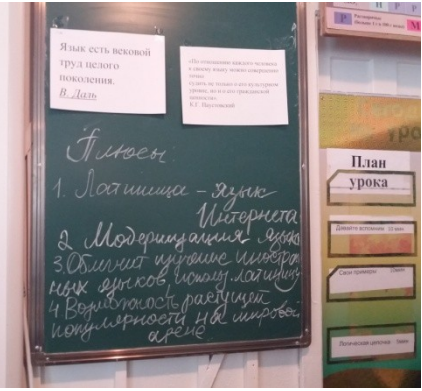 Язык есть вековой
труд целого
поколения.
В. Даль
«По отношению каждого человека
к своему языку можно совершенно
точно
судить не только о его культурном
уровне, но и о его гражданской
ценности»
К.Г. Паустовский
Плюсы:
1. Латиница – язык
Интернета
2 Модернизация языка
3. Облегчит изучение иностран
ных языков, использ. латиницу
4 Возможность растущей
популярности на мировой
арене
План
урока
Давайте вспомним
Свои примеры
Логическая цепочка